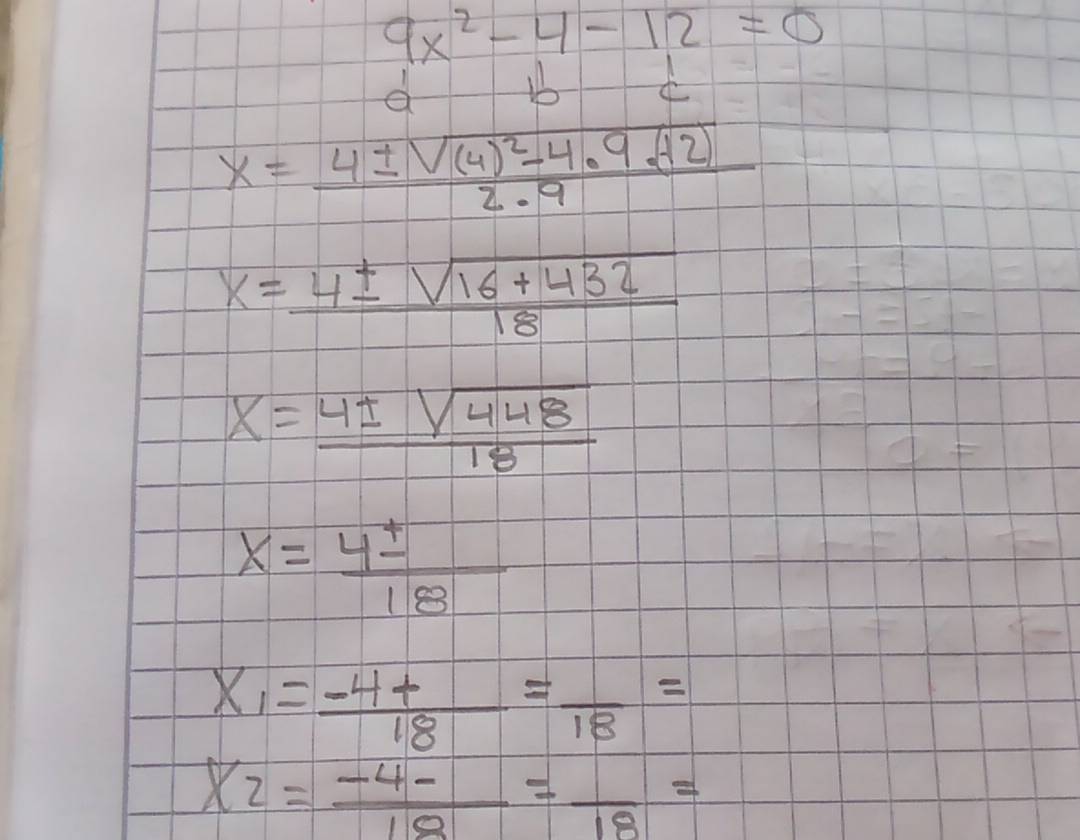 9x² - 4 - 12 = 0
a b c
x = 4 ± √(4)² - 4 . 9 . (-12) / 2 . 9
x = 4 ± √16 + 432 / 18
x = 4 ± √448 / 18
x = 4 ± / 18
x1 = -4 + / 18 = / 18 =
x2 = -4 - / 18 = / 18 =